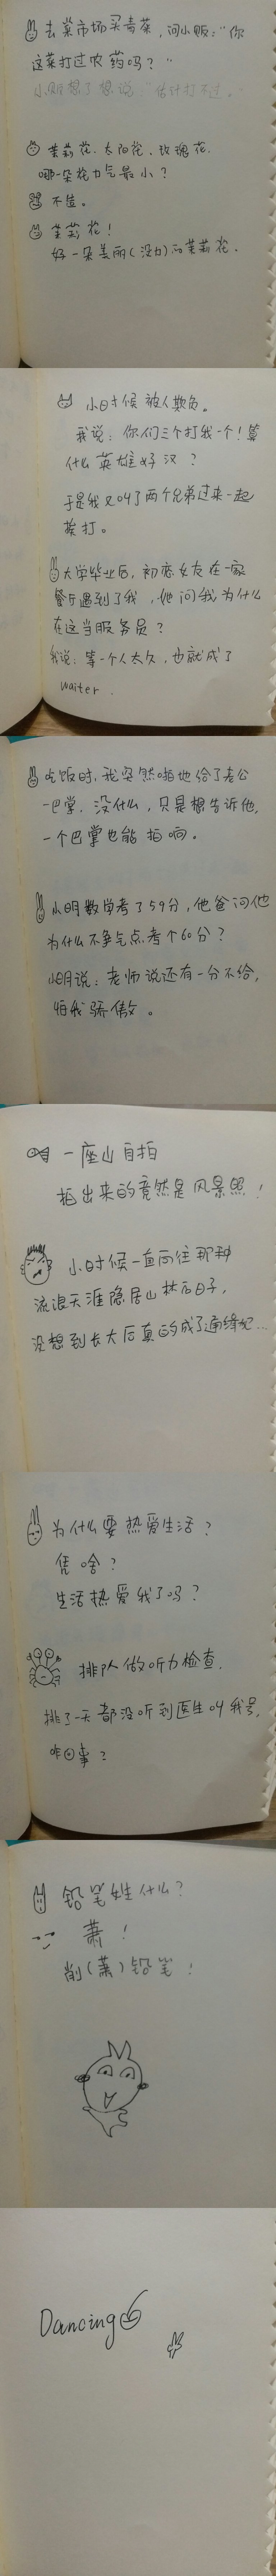 去菜市场买青菜,问小贩:“你
这菜打过农药吗?”
小贩想了想说:“估计打不过。”
茉莉花、太阳花、玫瑰花.
哪一朵花力气最小?
不造。
茉莉花!
好一朵美丽(没力)的茉莉花.
小时候被人欺负。
我说:你们三个打我一个!算
什么英雄好汉?
于是我又叫了两个兄弟过来一起
挨打。
大学毕业后,初恋女友在一家
餐厅遇到了我,她问我为什么
在这当服务员?
我说:等一个人太久,也就成了
waiter.
吃饭时,我突然啪地给了老公
一巴掌.没什么,只是想告诉他,
一个巴掌也能拍响.
小明数学考了59分,他爸问他
为什么不争气点考个60分?
小明说:老师说还有一分不给,
怕我骄傲。
一座山自拍
拍出来的竟然是风景照!
小时候一直向往那种
流浪天涯隐居山林的日子,
没想到长大后真的成了通缉犯...
为什么要热爱生活?
凭啥?
生活热爱我了吗?
排队做听力检查.
排了一天都没听到医生叫我号,
咋回事?
铅笔姓什么?
萧!
削(萧)铅笔!
Dancing